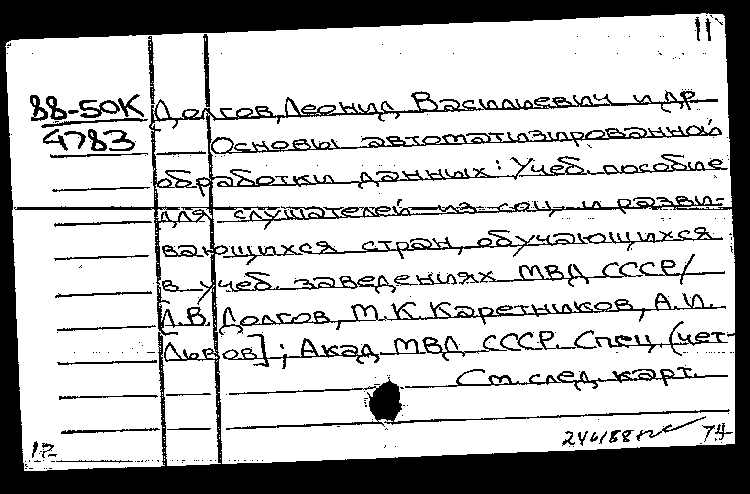 11
88-50К Долгов, Леонид Васильевич и др.
4783 Основы автоматизированной
обработки данных: Учеб. пособие
для слушателей из соц. и разви-
вающихся стран, обучающихся
в учеб. заведениях МВД СССР/
Л.В. Долгов, М.К. Каретников, А.И.
Львов]; Акад. МВД СССР. Спец. (чет-
См. след. карт.
74